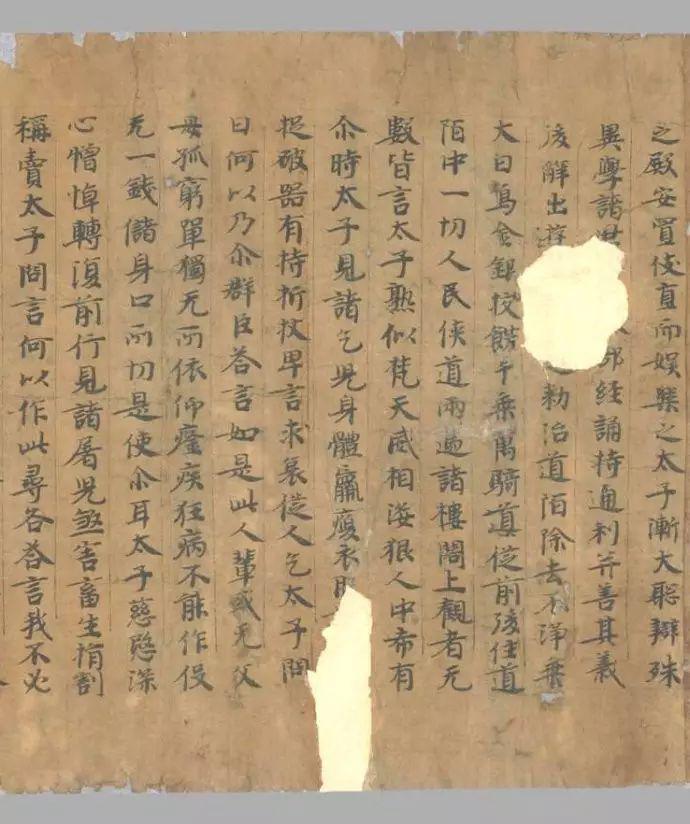 之殿安置伎直而娛樂之太子漸大聡辯殊
異學諸世部經誦持通利并善其義
後辭出遊勑治道陌除去不淨乗
大白烏金銀挍餝千乗萬騎導從前後住道
陌中一切人民俠道兩邊諸樓閣上觀者无
數皆言太子熟似梵天威相人中希有
尒時太子見諸乞兒身體羸瘦衣服
捉破器有持折杖卑言求哀從人乞太子問
曰何以乃尒群臣荅言如是此人輩或无父
母孤窮單獨无所依仰疾狂病不能作役
无一錢儲身口所切是使尒耳太子慈愍深
心憎悼轉復前行見諸屠兒煞害畜生割
稱賣太子問言何以作此尋各荅言我不必